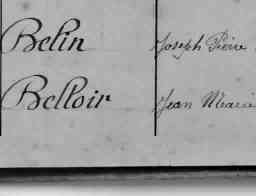 Belin Joseph Pierre
Belloir Jean Marie